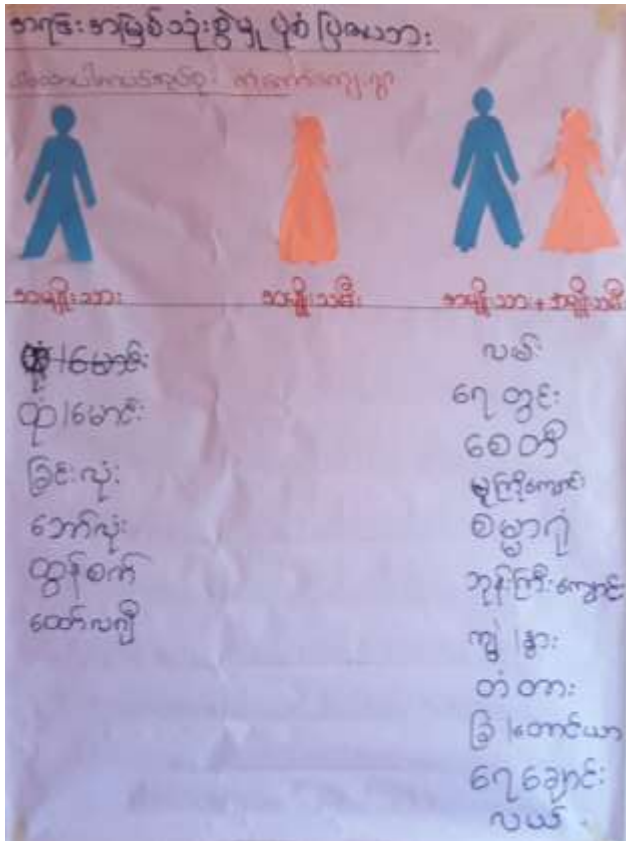 အရင်းအမြစ်သုံးစွဲမှု ပုံစံပြဇယား
အမျိုးသား
အမျိုးသမီး
အမျိုးသား + အမျိုးသမီး
ထုံ/မောင်း
ခြင်းလုံး
ဘော်လုံး
ထွန်စက်
ထော်လဂျီ
လမ်း
ရေတွင်း
စေတီ
မူကြိုကျောင်း
ဓမ္မာရုံ
ဘုန်းကြီးကျောင်း
ကျွဲ/နွား
တံတား
ခြံ/တောင်ယာ
ရေချောင်း
လယ်